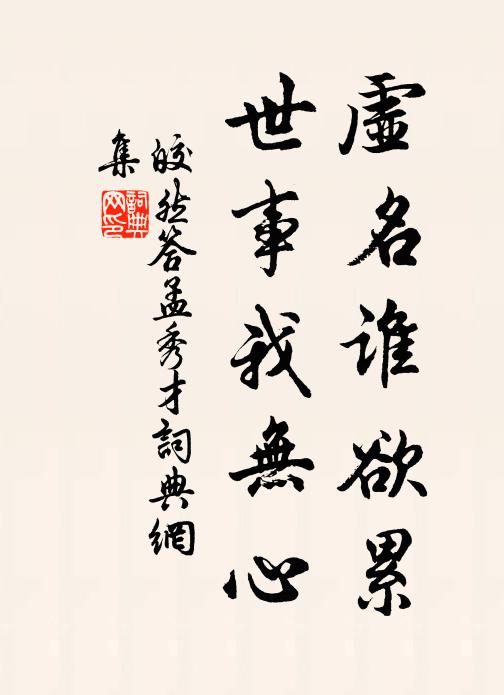 虛名誰欲累
世事我無心
皎然答孟秀才詞典網
集
詞典
网印